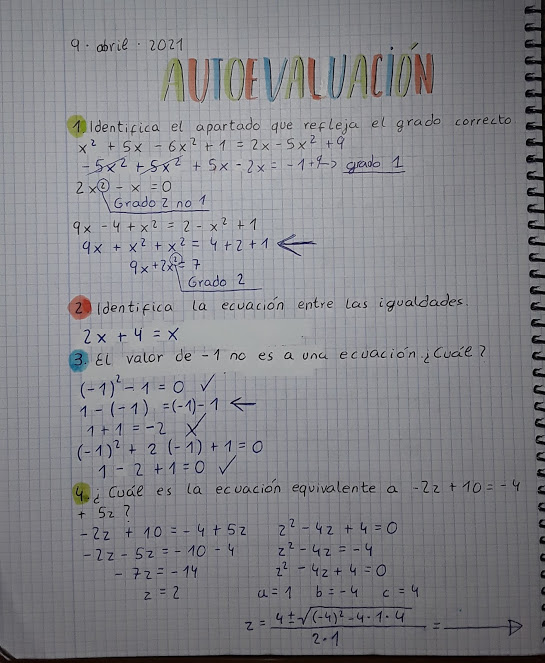 9 · abril · 2021
AUTOEVALUACIÓN
1 Identifica el apartado que refleja el grado correcto
x² + 5x - 6x² + 1 = 2x - 5x² + 9
-5x² + 5x² + 5x - 2x = -1 + 9 → grado 1
2x² - x = 0
Grado 2 no 1
9x - 4 + x² = 2 - x² + 1
9x + x² + x² = 4 + 2 + 1 ←
9x + 2x² = 7
Grado 2
2 Identifica la ecuación entre las igualdades.
2x + 4 = x
3. El valor de -1 no es a una ecuación. ¿Cuál?
(-1)² - 1 = 0 ✓
1 - (-1) = (-1) - 1 ←
1 + 1 = -2 ✗
(-1)² + 2 (-1) + 1 = 0
1 - 2 + 1 = 0 ✓
4. ¿Cuál es la ecuación equivalente a -2z + 10 = -4
+ 5z ?
-2z + 10 = -4 + 5z z² - 4z + 4 = 0
-2z - 5z = -10 - 4 z² - 4z = -4
-7z = -14 z² - 4z + 4 = 0
z = 2 a = 1 b = -4 c = 4
z = 4 ± √(-4)² - 4 · 1 · 4 = →
2 · 1